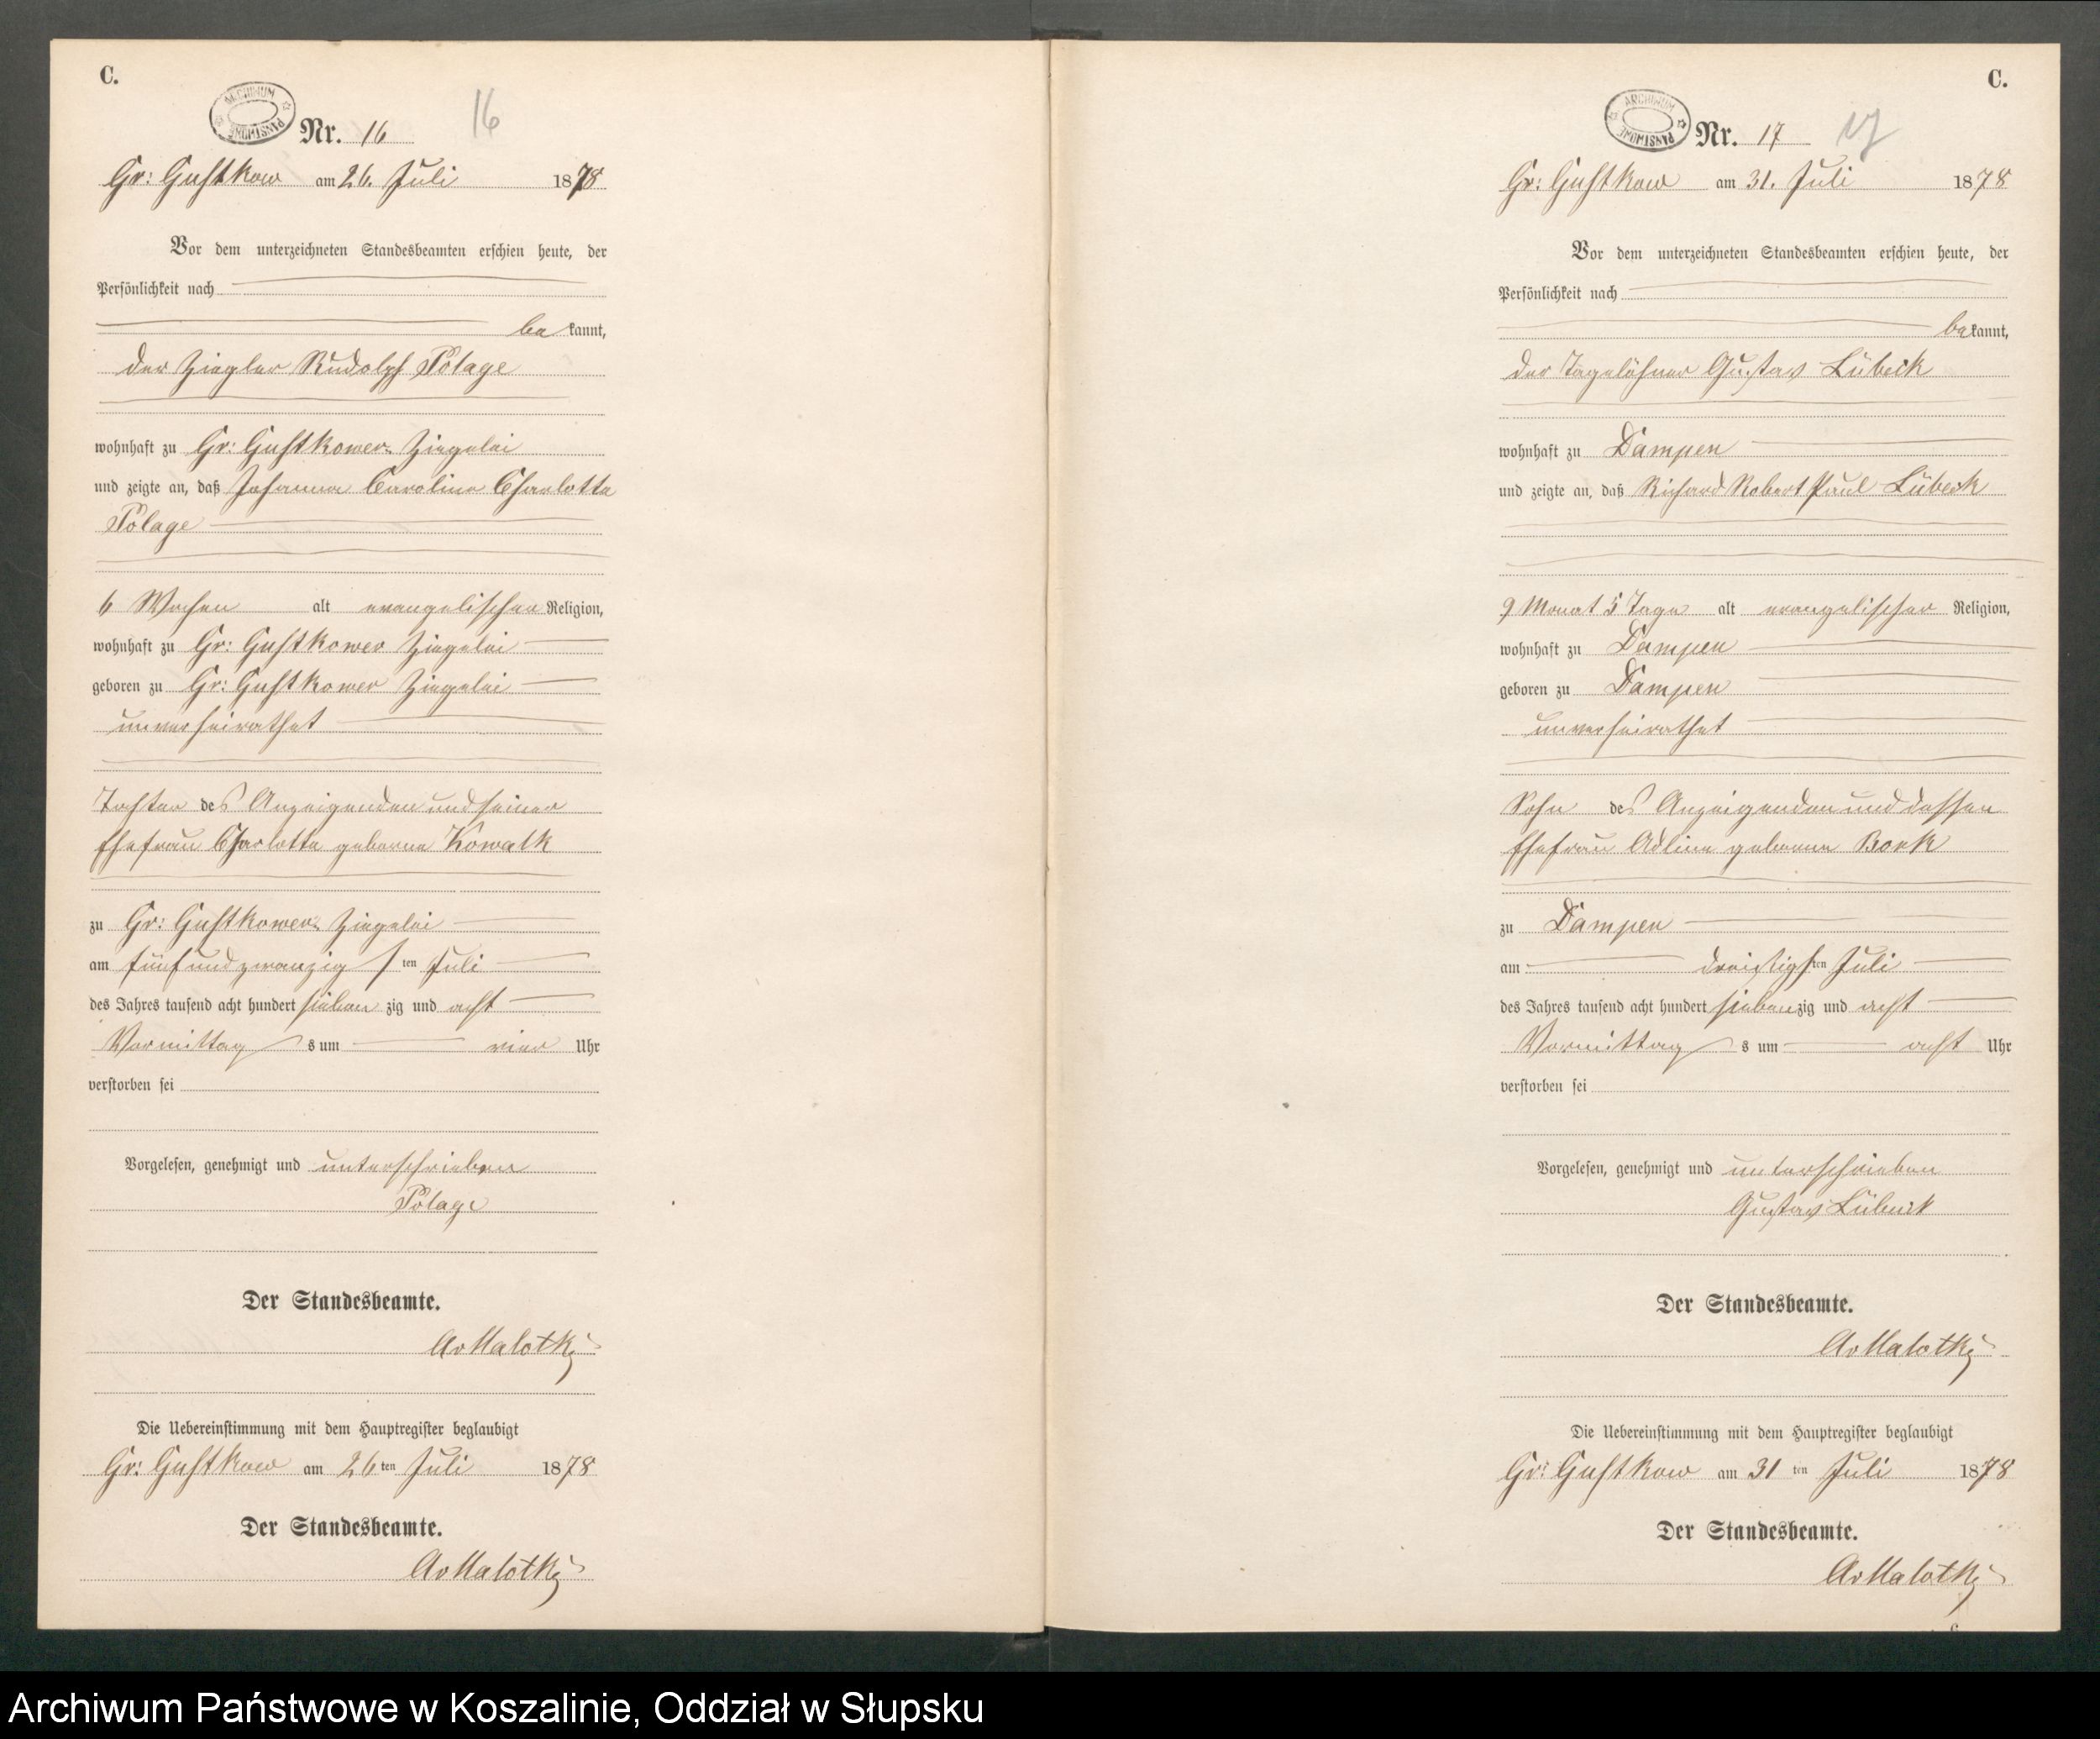 C.
ARCHIWUM PAŃSTWOWE
Nr. 16
16
Gr: Gustkow am 26. Juli 1878
Vor dem unterzeichneten Standesbeamten erschien heute, der
Persönlichkeit nach
be kannt,
der Ziegler Rudolph Polage
wohnhaft zu Gr: Gustkower Ziegelei
und zeigte an, daß Johanna Caroline Charlotte
Polage
6 Wochen alt evangelischer Religion,
wohnhaft zu Gr: Gustkower Ziegelei
geboren zu Gr: Gustkower Ziegelei
unverheirathet
Tochter des Anzeigenden und seiner
Ehefrau Charlotte geborene Kowalk
zu Gr: Gustkower Ziegelei
am fünfundzwanzigsten Juli
des Jahres tausend acht hundert siebenzig und acht
Vormittags um vier Uhr
verstorben sei
Vorgelesen, genehmigt und unterschrieben
Polage
Der Standesbeamte.
AvMalotky
Die Uebereinstimmung mit dem Hauptregister beglaubigt
Gr: Gustkow am 26ten Juli 1878
Der Standesbeamte.
AvMalotky
C.
ARCHIWUM PAŃSTWOWE
Nr. 17
17
Gr: Gustkow am 31. Juli 1878
Vor dem unterzeichneten Standesbeamten erschien heute, der
Persönlichkeit nach
bekannt,
der Tagelöhner Gustav Lübeck
wohnhaft zu Dampen
und zeigte an, daß Richard Robert Paul Lübeck
9 Monat 5 Tage alt evangelischer Religion,
wohnhaft zu Dampen
geboren zu Dampen
unverheirathet
Sohn des Anzeigenden und dessen
Ehefrau Adline geborene Bork
zu Dampen
am dreißigsten Juli
des Jahres tausend acht hundert siebenzig und acht
Vormittags um acht Uhr
verstorben sei
Vorgelesen, genehmigt und unterschrieben
Gustav Lübeck
Der Standesbeamte.
AvMalotky
Die Uebereinstimmung mit dem Hauptregister beglaubigt
Gr: Gustkow am 31 ten Juli 1878
Der Standesbeamte.
AvMalotky
Archiwum Państwowe w Koszalinie, Oddział w Słupsku